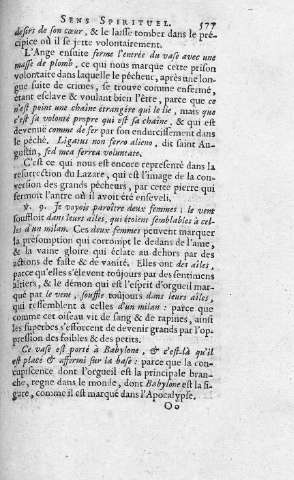 SENS SPIRITUEL. 577
desirs de son cœur, & le laisse tomber dans le pré-
cipice où il se jette volontairement.
L'Ange ensuite ferme l'entrée du vase avec une
masse de plomb, ce qui nous marque cette prison
volontaire dans laquelle le pécheur, après une lon-
gue suite de crimes, se trouve comme enfermé,
étant esclave & voulant bien l'être, parce que ce
n'est point une chaîne étrangére qui le lie, mais que
c'est sa volonté propre qui est sa chaîne, & qui est
devenuë comme de fer par son endurcissement dans
le péché. Ligatus non ferro alieno, dit saint Au-
gustin, sed mea ferrea voluntate.
C'est ce qui nous est encore représenté dans la
resurrection du Lazare, qui est l'image de la con-
version des grands pécheurs, par cette pierre qui
fermoit l'antre où il avoit été enseveli.
V. 9. Je voyois paroître deux femmes : le vent
souffloit dans leurs ailes, qui étoient semblables à cel-
les d'un milan. Ces deux femmes peuvent marquer
la présomption qui corrompt le dedans de l'ame,
& la vaine gloire qui éclate au dehors par des
actions de faste & de vanité. Elles ont des ailes,
parce qu'elles s'élevent toûjours par des sentimens
altiers, & le démon qui est l'esprit d'orgueil mar-
qué par le vent, souffle toûjours dans leurs ailes,
qui ressemblent à celles d'un milan : parce que
comme cet oiseau vit de sang & de rapines, ainsi
les superbes s'efforcent de devenir grands par l'op-
pression des foibles & des petits.
Ce vase est porté à Babylone, & c'est-là qu'il
est placé & affermi sur sa base : parce que la con-
cupiscence dont l'orgueil est la principale bran-
che, regne dans le monde, dont Babylone est la fi-
gure, comme il est marqué dans l'Apocalypse.
Oo